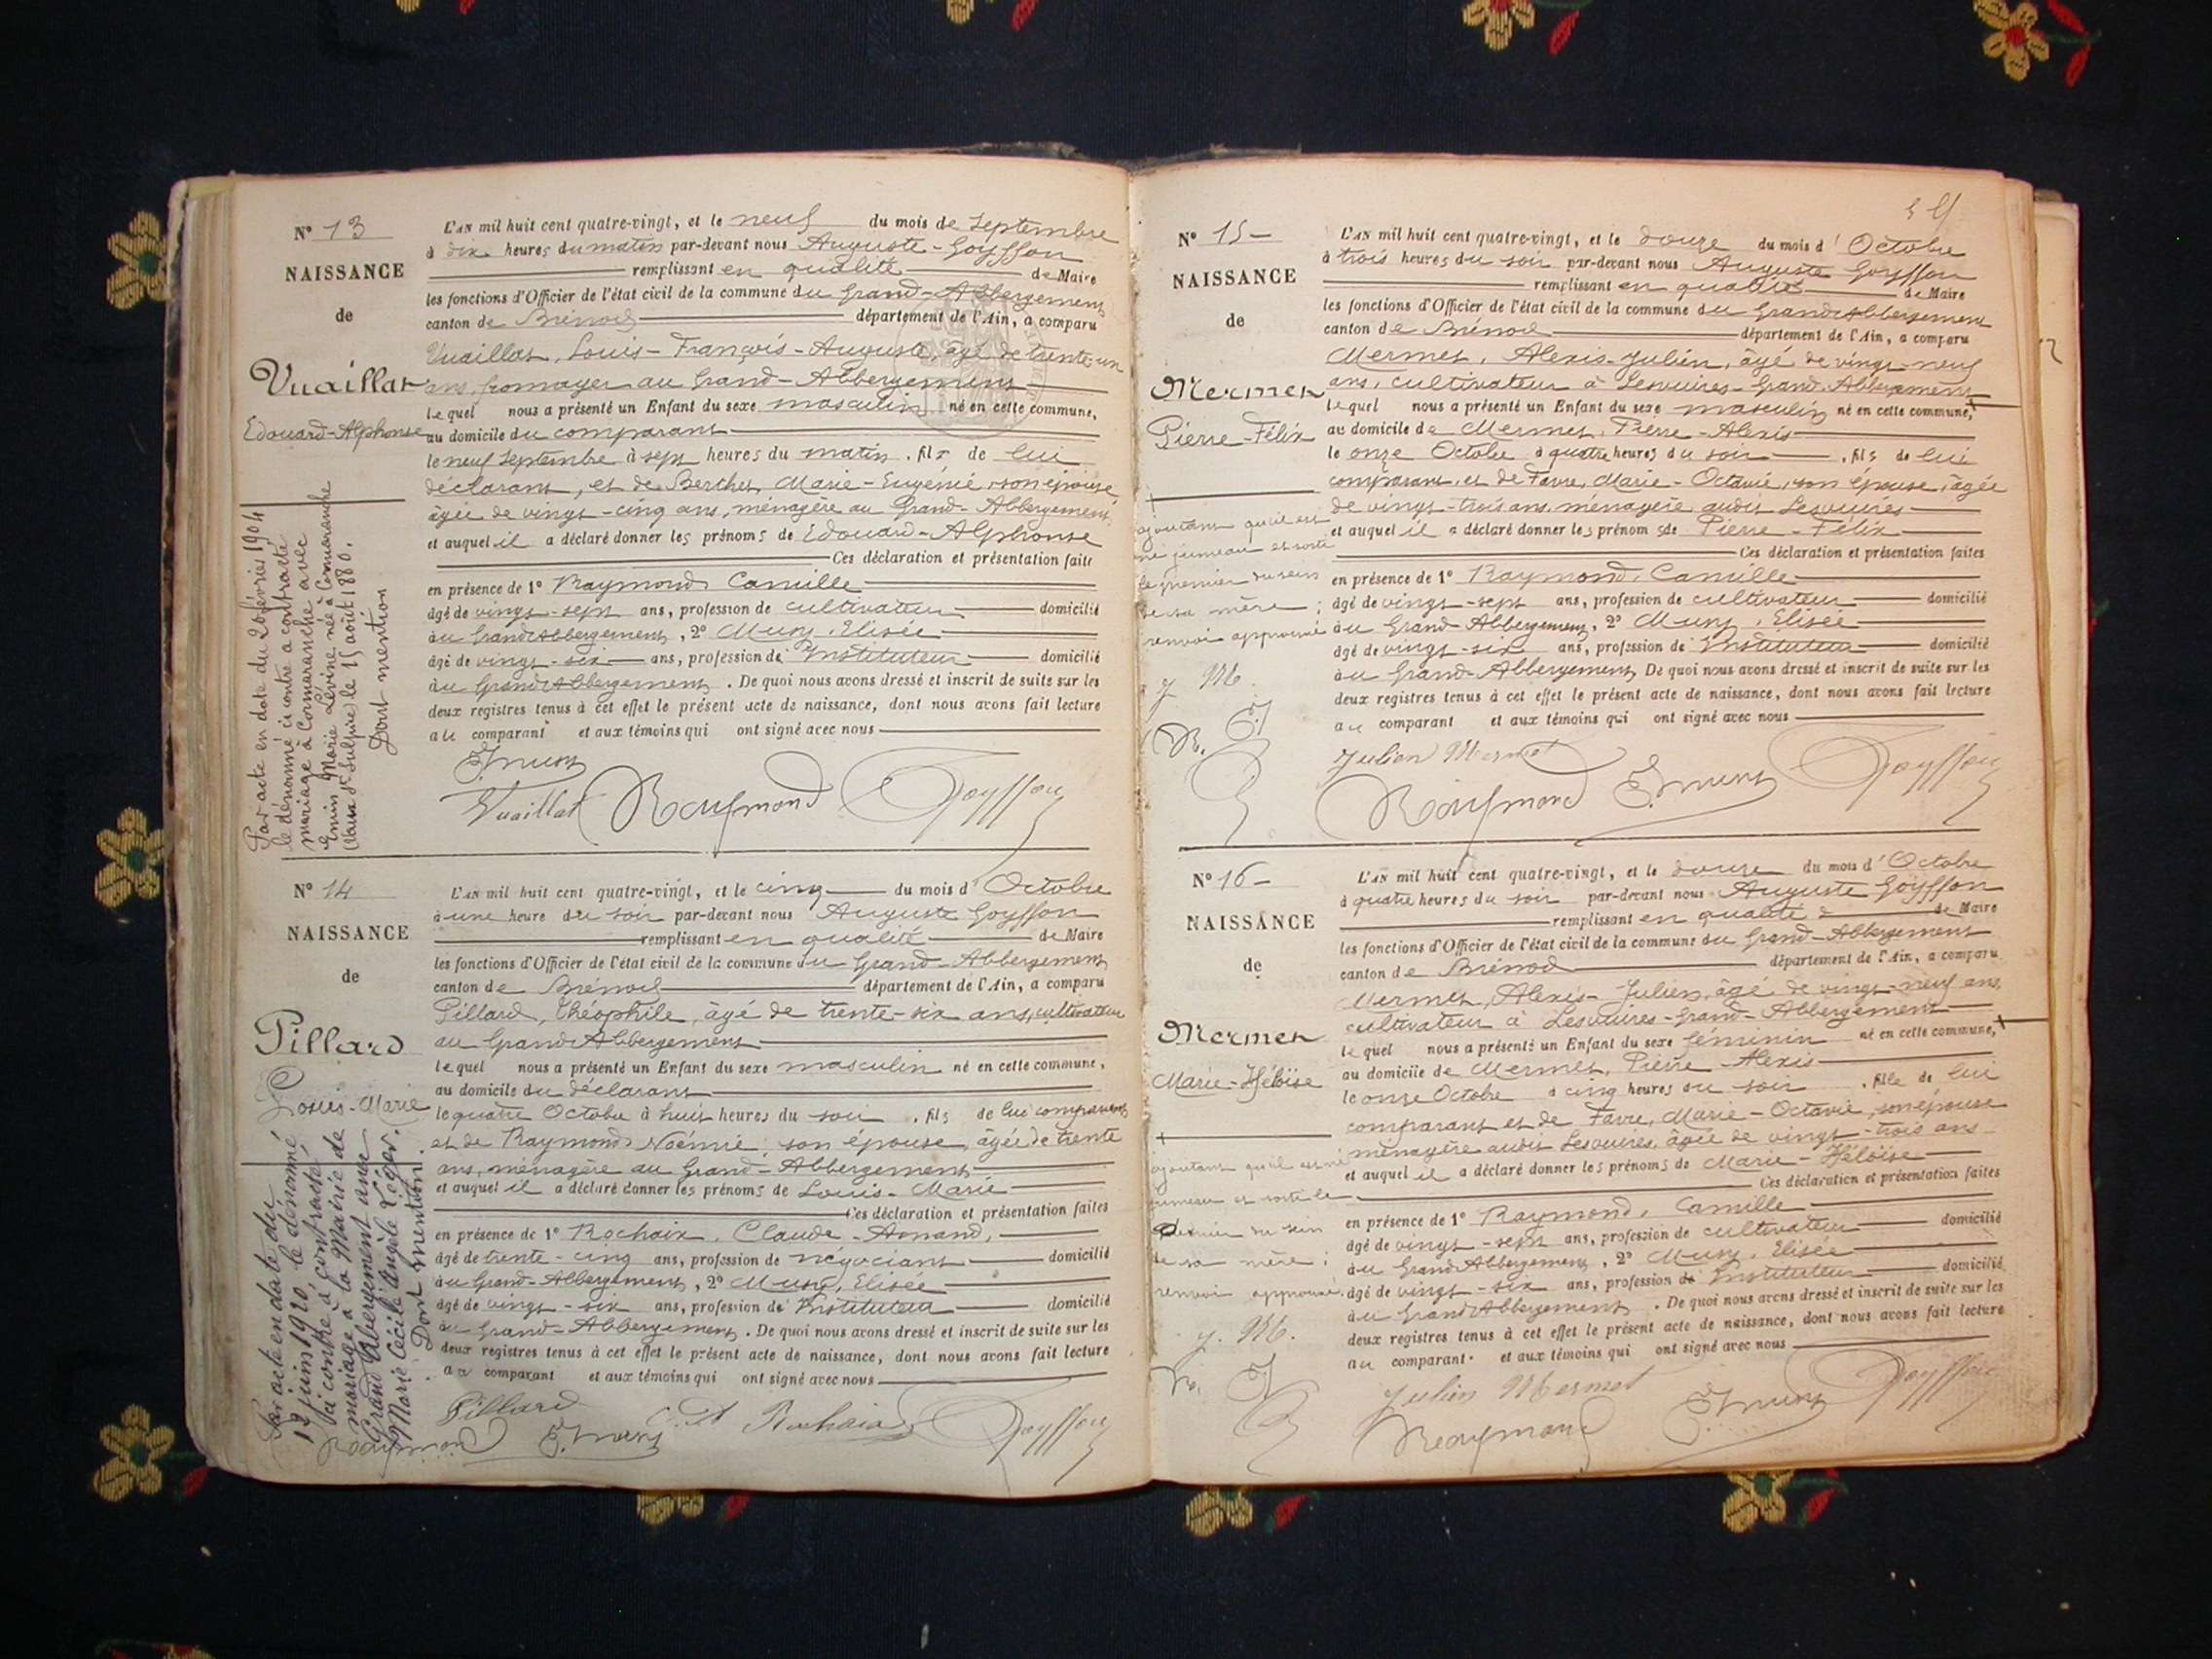 N° 13
NAISSANCE
de
Vuaillat
Edouard-Alphonse
L'AN mil huit cent quatre-vingt, et le neuf du mois de Septembre
à dix heures du matin par-devant nous Auguste-Goyffon
remplissant en qualité de Maire
les fonctions d'Officier de l'état civil de la commune du Grand-Abbergement
canton de Brénod département de l'Ain, a comparu
Vuaillat, Louis-François-Auguste, âgé de trente-un
ans, fromager au Grand-Abbergement
lequel nous a présenté un Enfant du sexe masculin né en cette commune,
au domicile du comparant
le neuf Septembre à sept heures du matin, fils de lui
déclarant, et de Berthet, Marie-Eugénie, son épouse,
âgée de vingt-cinq ans, ménagère au Grand-Abbergement,
et auquel il a déclaré donner les prénoms de Edouard-Alphonse
Ces déclaration et présentation faite
en présence de 1° Raymond Camille
âgé de vingt-sept ans, profession de cultivateur domicilié
au Grand Abbergement, 2° Muny, Elisée
âgé de vingt-six ans, profession de Instituteur domicilié
au Grand Abbergement. De quoi nous avons dressé et inscrit de suite sur les
deux registres tenus à cet effet le présent acte de naissance, dont nous avons fait lecture
au comparant et aux témoins qui ont signé avec nous
Vuaillat Raymond Goyffon
Par acte en date du 20 février 1904
le dénommé ci contre a contracté
mariage à Cormaranche avec
Emin Marie Lévine née à Cormaranche
le 15 août 1880.
Dont mention
N° 14
NAISSANCE
de
Pillard
Louis-Marie
L'AN mil huit cent quatre-vingt, et le cinq du mois d'Octobre
à une heure du soir par-devant nous Auguste Goyffon
remplissant en qualité de Maire
les fonctions d'Officier de l'état civil de la commune du Grand-Abbergement
canton de Brénod département de l'Ain, a comparu
Pillard, Théophile, âgé de trente-six ans, cultivateur
au Grand Abbergement
lequel nous a présenté un Enfant du sexe masculin né en cette commune,
au domicile du déclarant
le quatre Octobre à huit heures du soir, fils de lui comparant
et de Raymond Noémie, son épouse, âgée de trente
ans, ménagère au Grand-Abbergement
et auquel il a déclaré donner les prénoms de Louis-Marie
Ces déclaration et présentation faites
en présence de 1° Rochaix, Claude-Amand,
âgé de trente-cinq ans, profession de négociant domicilié
au Grand-Abbergement, 2° Muny, Elisée
âgé de vingt-six ans, profession de Instituteur domicilié
au Grand-Abbergement. De quoi nous avons dressé et inscrit de suite sur les
deux registres tenus à cet effet le présent acte de naissance, dont nous avons fait lecture
au comparant et aux témoins qui ont signé avec nous
Pillard Rochaix Goyffon
Raymond
Par acte en date du
12 juin 1920, le dénommé
ci contre a contracté
mariage à la Mairie de
Grand Abergement avec
Marie Cécile Angèle Léger.
Dont mention.
N° 15
NAISSANCE
de
Mermet
Pierre-Félix
L'AN mil huit cent quatre-vingt, et le douze du mois d'Octobre
à trois heures du soir par-devant nous Auguste Goyffon
remplissant en qualité de Maire
les fonctions d'Officier de l'état civil de la commune du Grand Abbergement
canton de Brénod département de l'Ain, a comparu
Mermet, Alexis-Julien, âgé de vingt-neuf
ans, cultivateur à Lesvuires-Grand-Abbergement
lequel nous a présenté un Enfant du sexe masculin né en cette commune,
au domicile de Mermet, Pierre-Alexis
le onze Octobre à quatre heures du soir, fils de lui
comparant, et de Favre, Marie-Octavie, son épouse, âgée
de vingt-trois ans, ménagère audit Lesvuires
et auquel il a déclaré donner les prénoms de Pierre-Félix
Ces déclaration et présentation faites
en présence de 1° Raymond, Camille
âgé de vingt-sept ans, profession de cultivateur domicilié
au Grand-Abbergement, 2° Muny, Elisée
âgé de vingt-six ans, profession de Instituteur domicilié
au Grand-Abbergement. De quoi nous avons dressé et inscrit de suite sur les
deux registres tenus à cet effet le présent acte de naissance, dont nous avons fait lecture
au comparant et aux témoins qui ont signé avec nous
Julien Mermet
Raymond Goyffon
ajoutant qu'il est
né jumeau et sorti
le premier du sein
de sa mère;
renvoi approuvé
J M.
R.
N° 16
NAISSANCE
de
Mermet
Marie-Héloïse
L'AN mil huit cent quatre-vingt, et le douze du mois d'Octobre
à quatre heures du soir par-devant nous Auguste Goyffon
remplissant en qualité de Maire
les fonctions d'Officier de l'état civil de la commune du Grand-Abbergement
canton de Brénod département de l'Ain, a comparu
Mermet, Alexis-Julien, âgé de vingt-neuf ans,
cultivateur à Lesvuires-Grand-Abbergement
lequel nous a présenté un Enfant du sexe féminin né en cette commune,
au domicile de Mermet, Pierre-Alexis
le onze Octobre à cinq heures du soir, fille de lui
comparant et de Favre, Marie-Octavie, son épouse
ménagère audit Lesvuires, âgée de vingt-trois ans
et auquel il a déclaré donner les prénoms de Marie-Héloïse
Ces déclaration et présentation faites
en présence de 1° Raymond, Camille
âgé de vingt-sept ans, profession de cultivateur domicilié
au Grand Abbergement, 2° Muny, Elisée
âgé de vingt-six ans, profession de Instituteur domicilié
au Grand Abbergement. De quoi nous avons dressé et inscrit de suite sur les
deux registres tenus à cet effet le présent acte de naissance, dont nous avons fait lecture
au comparant et aux témoins qui ont signé avec nous
Julien Mermet
Raymond Goyffon
ajoutant qu'il est né
jumeau et sorti le
dernier du sein
de sa mère;
renvoi approuvé.
J. M.
R.